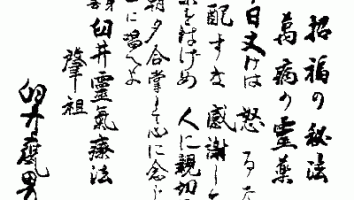 招福の秘法
萬病の靈薬
日丈けは 怒るな
配すな 感謝して
をはげめ 人に親切
朝夕合掌して心に念じ
に唱へよ
臼井靈氣療法
肇祖
臼井甕男